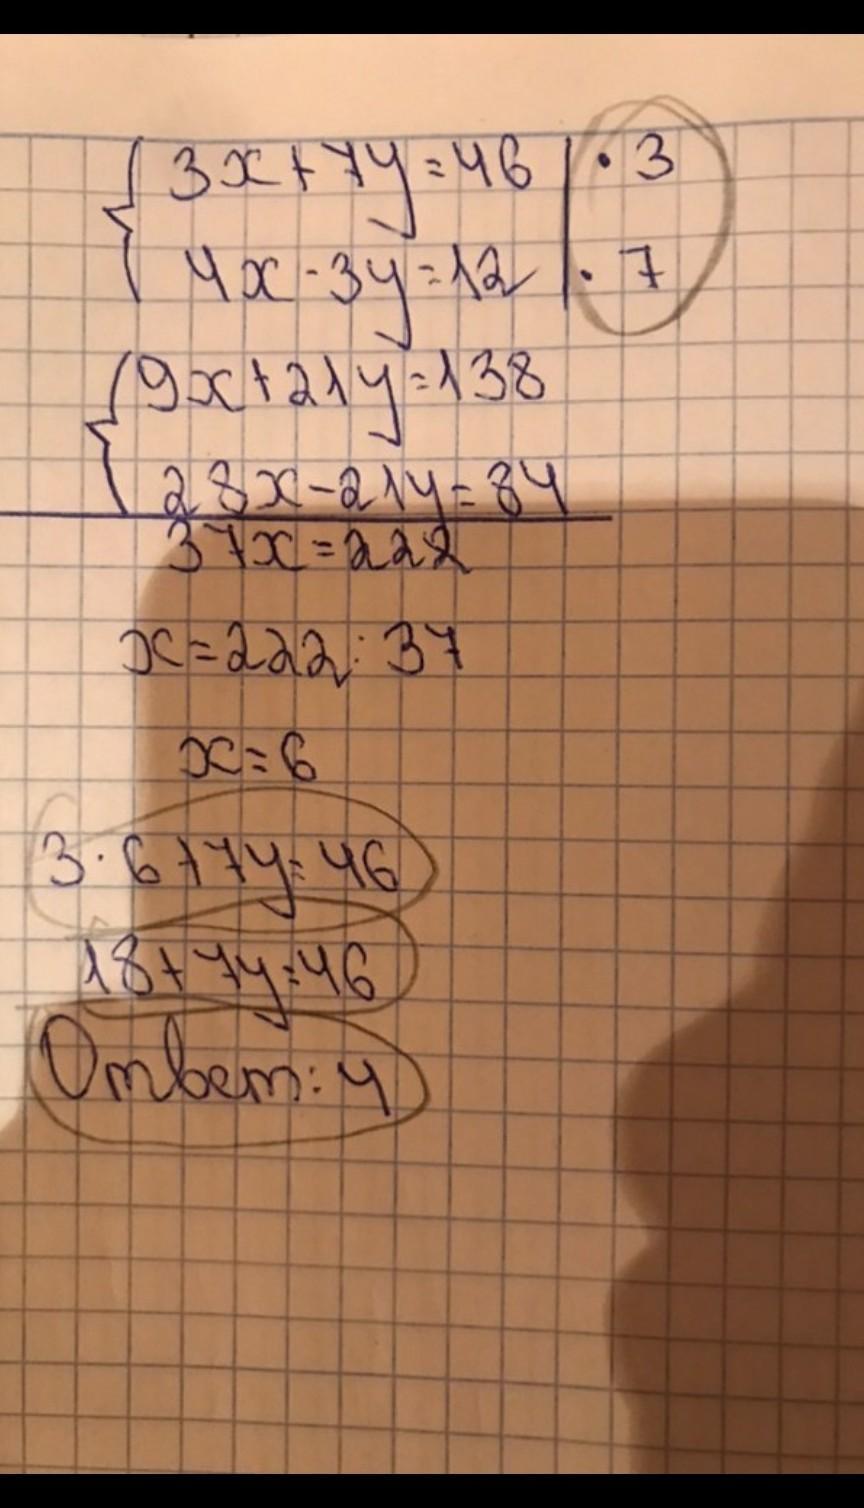 3x+7y=46 | · 3
4x-3y=12 | · 7
9x+21y=138
28x-21y=84
37x=222
x=222:37
x=6
3·6+7y=46
18+7y=46
Ответ: 4